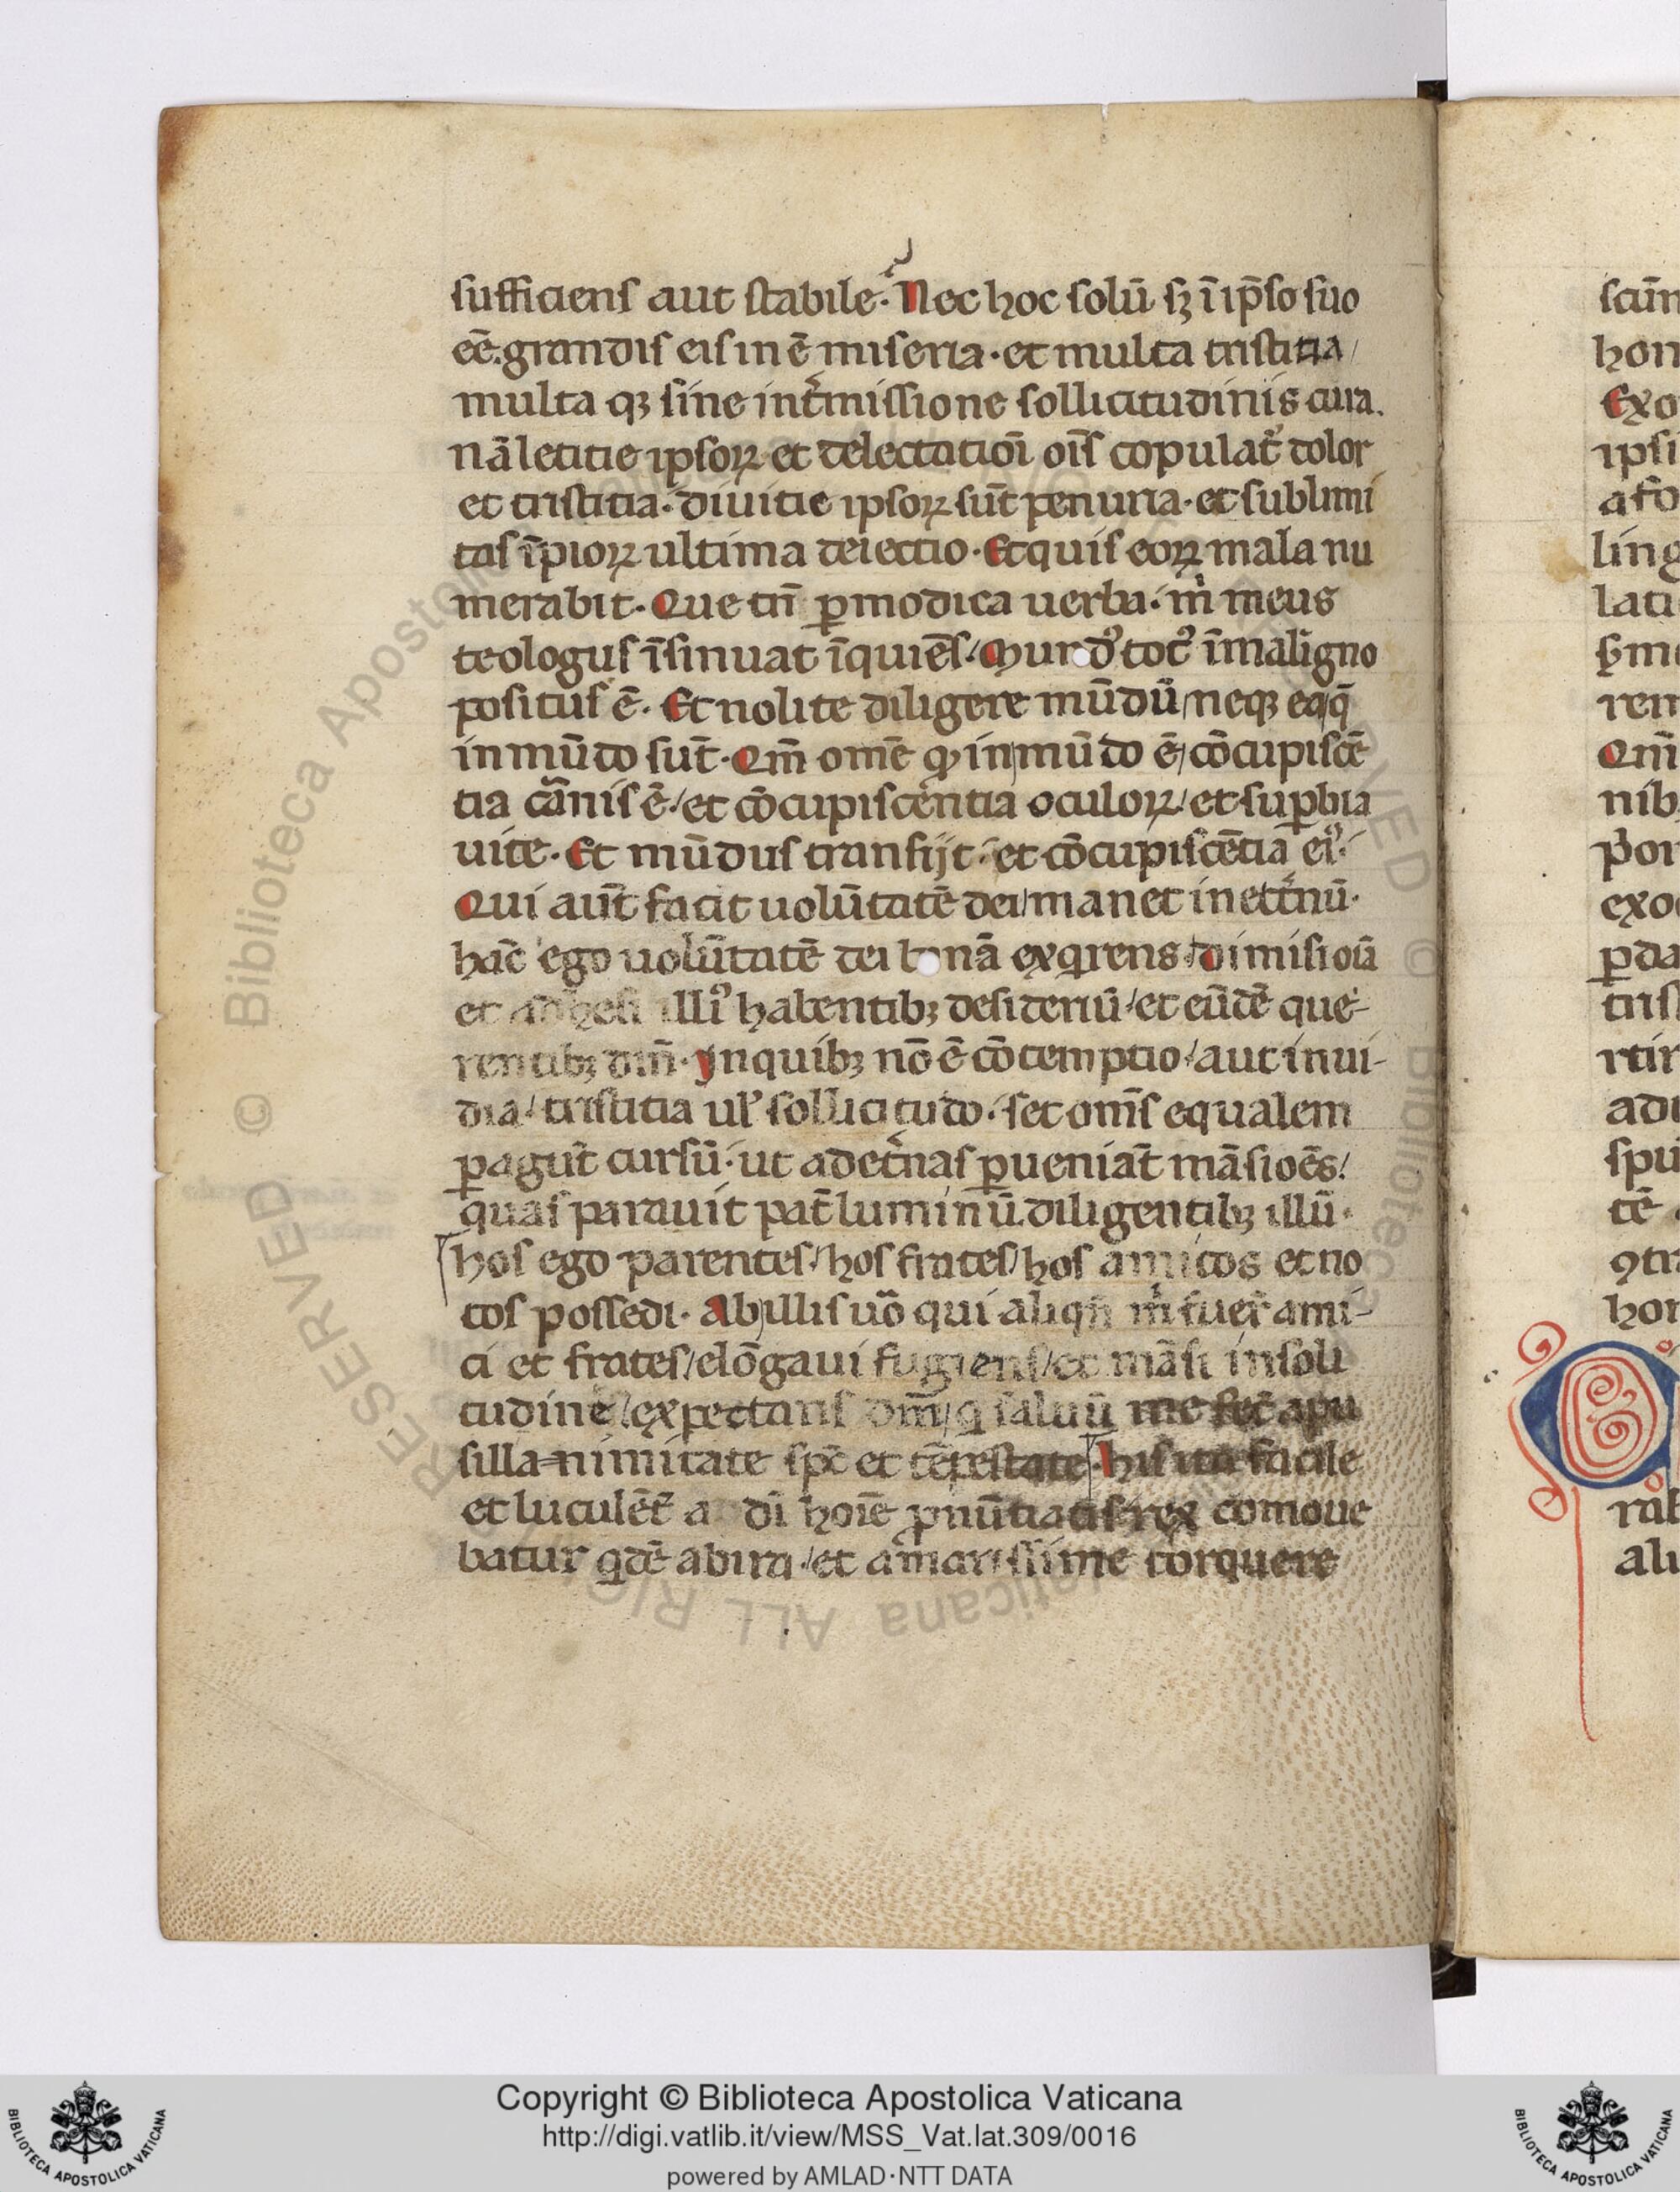 sufficiens aut stabile. Nec hoc solū sꝫ ī ip̄so suo
eē. grandis eis in ē miseria. et multa tristitia/
multa qꝫ sine int̄missione sollicitudinis cura.
nā letitie ipsoꝝ et delectatiōi oīs copulat᷑ dolor
et tristitia. diuitie ipsoꝝ sūt penuria. et sublimi
tas īpioꝝ ultima deiectio. Et quis eoꝝ mala nu
merabit. Que tn̄ ꝑ modica uerba. m̍ meus
teologus īsinuat īquiēs/ Mundꝰ totꝰ ī maligno
positus ē. Et nolite diligere mūdū/ neqꝫ ea/ q̄
in mūdo sūt. Qm̄ omē qͩ in mūdo ē/ cōcupiscē
tia carnis ē./ et cōcupiscentia oculoꝝ/ et suꝑbia
uite. Et mūdus transijt./ et cōcupiscētia eiꝰ.
Qui aūt facit uolūtatē dei/ manet in et̄nū.
hāc ego uolūtatē dei bonā exq̍rens/ dimisi oīa
et adhesi illiꝰ habentibꝫ desideriū/ et eūdē que-
rentibꝫ dm̄. In quibꝫ nō ē cōtemptio/ aut inui-
dia/ tristitia ul̓ sollicitudo./ set om̄s equalem
ꝑagūt cursū. ut ad et̄nas ꝑueniāt māsiōes/
quas parauit pat̄ luminū. diligentibꝫ illū.
hos ego parentes/ hos frates/ hos amicos et no
tos possedi. Ab illis uō qui aliqn̄ m̍ fuer̄ ami-
ci et frates/ elōgaui fugiens/ et māsi in soli
tudine/ expectans dm̄/ q̍ saluū me fec̄ a pu
silla=nimitate sp̄c et tēpestate. his ita facile
et luculēt̄ a dī hoīe ꝓnūtiatis/ rex comoue
batur q̍dē ab ira./ et amarissime torquere
scūn
hon
Exo
ipsi
a fo
ling
lati
rem
Qm̄
nib
exo
ꝑda
tris
rtir
adu
spu
tē
ꝯtr
hon
rab
ali
Copyright © Biblioteca Apostolica Vaticana
http://digi.vatlib.it/view/MSS_Vat.lat.309/0016
powered by AMLAD·NTT DATA
BIBLIOTECA APOSTOLICA VATICANA
BIBLIOTECA APOSTOLICA VATICANA